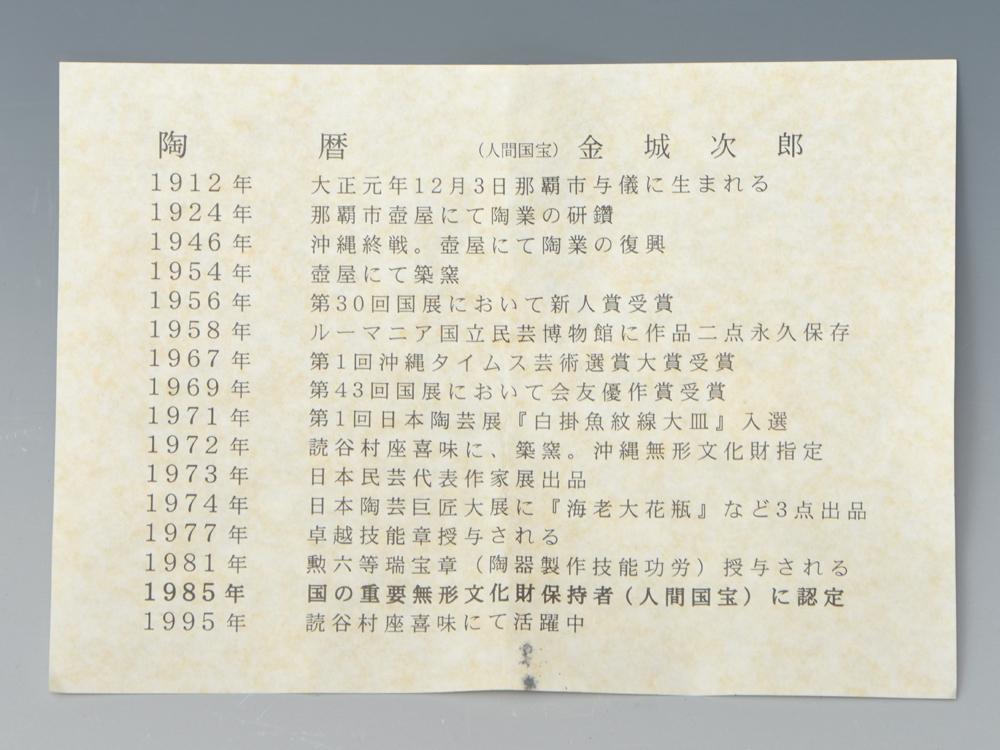 陶 暦 （人間国宝） 金城次郎
1912年 大正元年12月3日那覇市与儀に生まれる
1924年 那覇市壺屋にて陶業の研鑽
1946年 沖縄終戦。壺屋にて陶業の復興
1954年 壺屋にて築窯
1956年 第30回国展において新人賞受賞
1958年 ルーマニア国立民芸博物館に作品二点永久保存
1967年 第1回沖縄タイムス芸術選賞大賞受賞
1969年 第43回国展において会友優作賞受賞
1971年 第1回日本陶芸展『白掛魚紋線大皿』入選
1972年 読谷村座喜味に、築窯。沖縄無形文化財指定
1973年 日本民芸代表作家展出品
1974年 日本陶芸巨匠大展に『海老大花瓶』など3点出品
1977年 卓越技能章授与される
1981年 勲六等瑞宝章（陶器製作技能功労）授与される
1985年 国の重要無形文化財保持者（人間国宝）に認定
1995年 読谷村座喜味にて活躍中